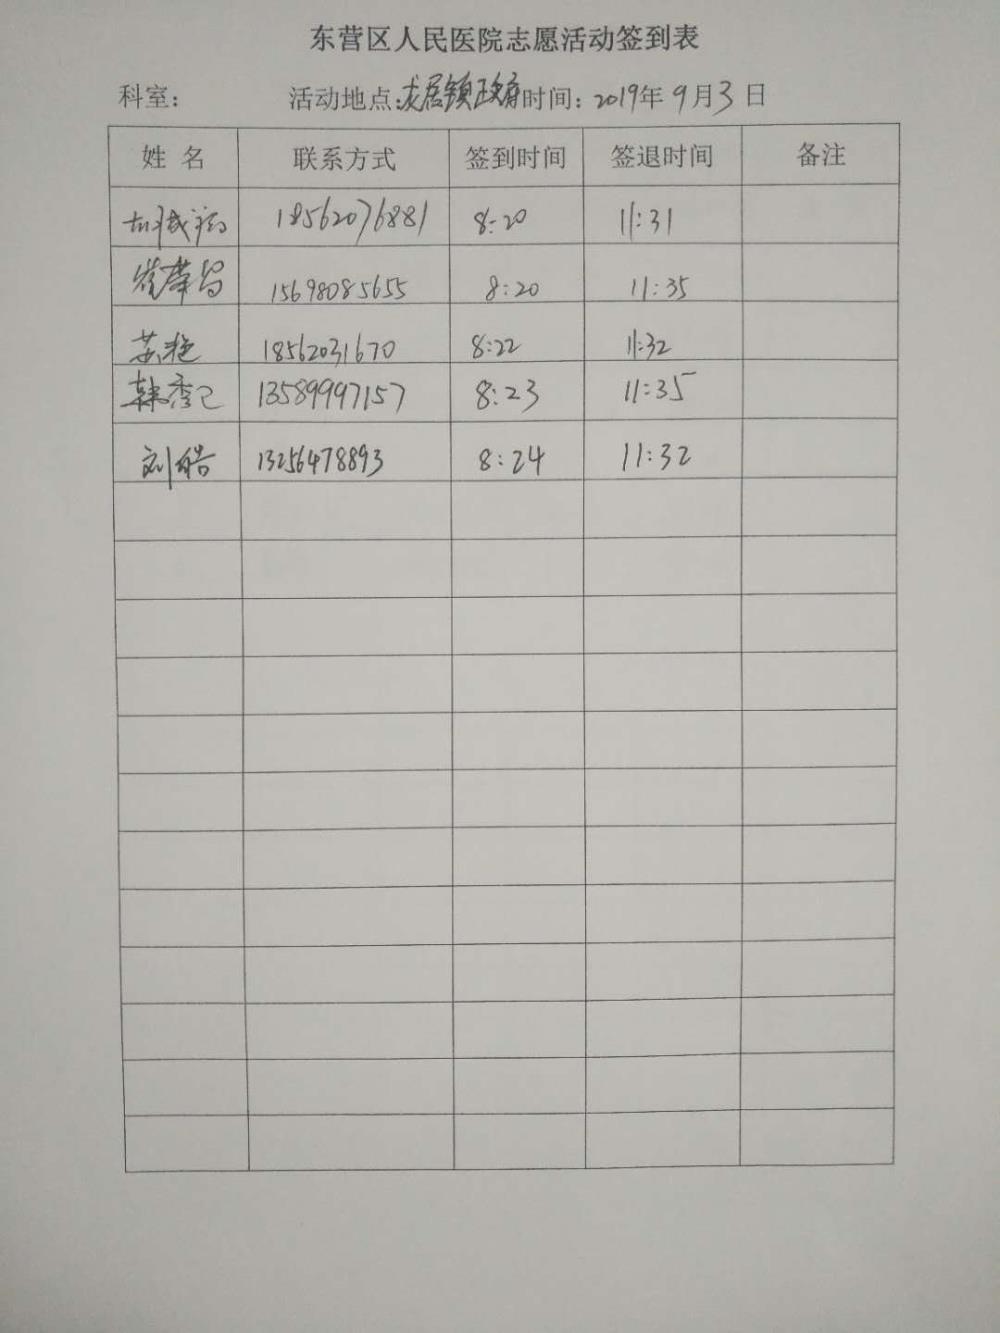 东营区人民医院志愿活动签到表
科室： 活动地点：龙居镇政府 时间：2019年9月3日
姓名 联系方式 签到时间 签退时间 备注
18562076881 8:20 11:31
崔 15698085655 8:20 11:35
苏艳 18562031670 8:22 11:32
韩秀 13589997157 8:23 11:35
刘皓 13256478893 8:24 11:32